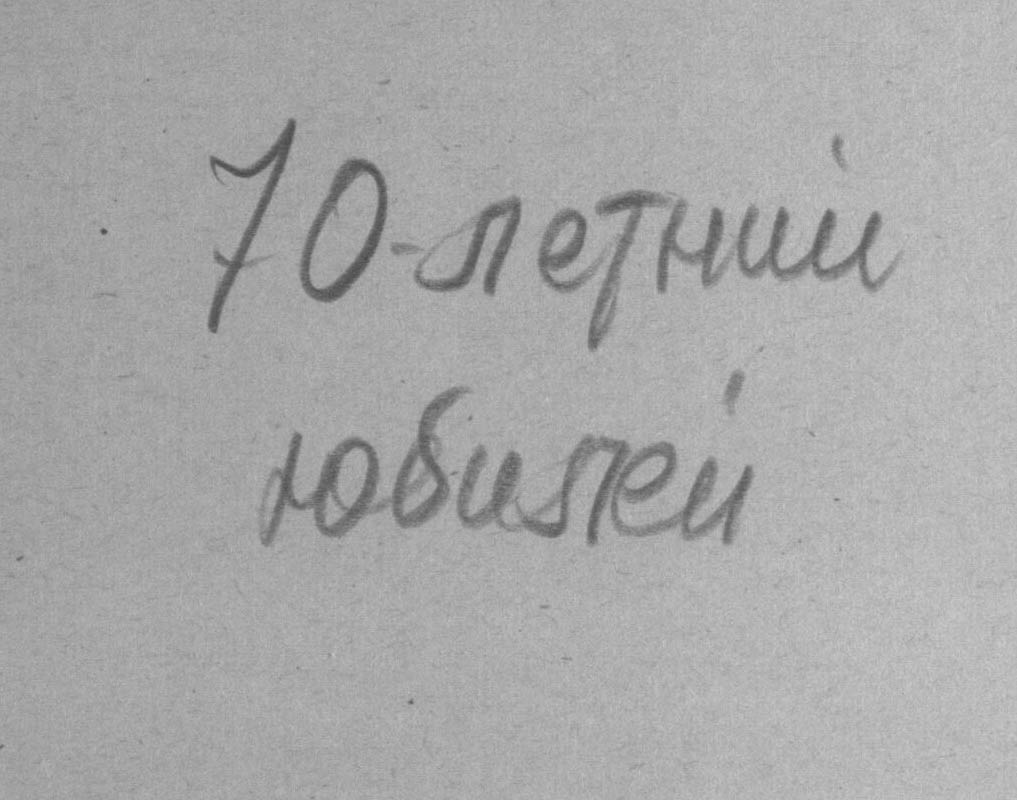 70-летний
юбилей